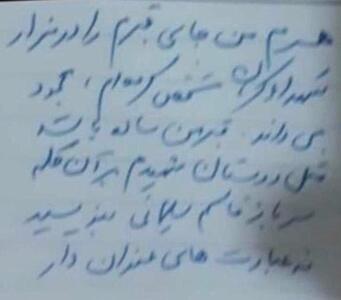 همسرم من جای قبرم را در مزار
شهداء کرمان مشخص کرده‌ام، محمود
می‌داند. قبر من ساده باشد
مثل دوستان شهیدم بر آن کلمه
سرباز قاسم سلیمانی بنویسید
نه عبارت‌های عنوان دار